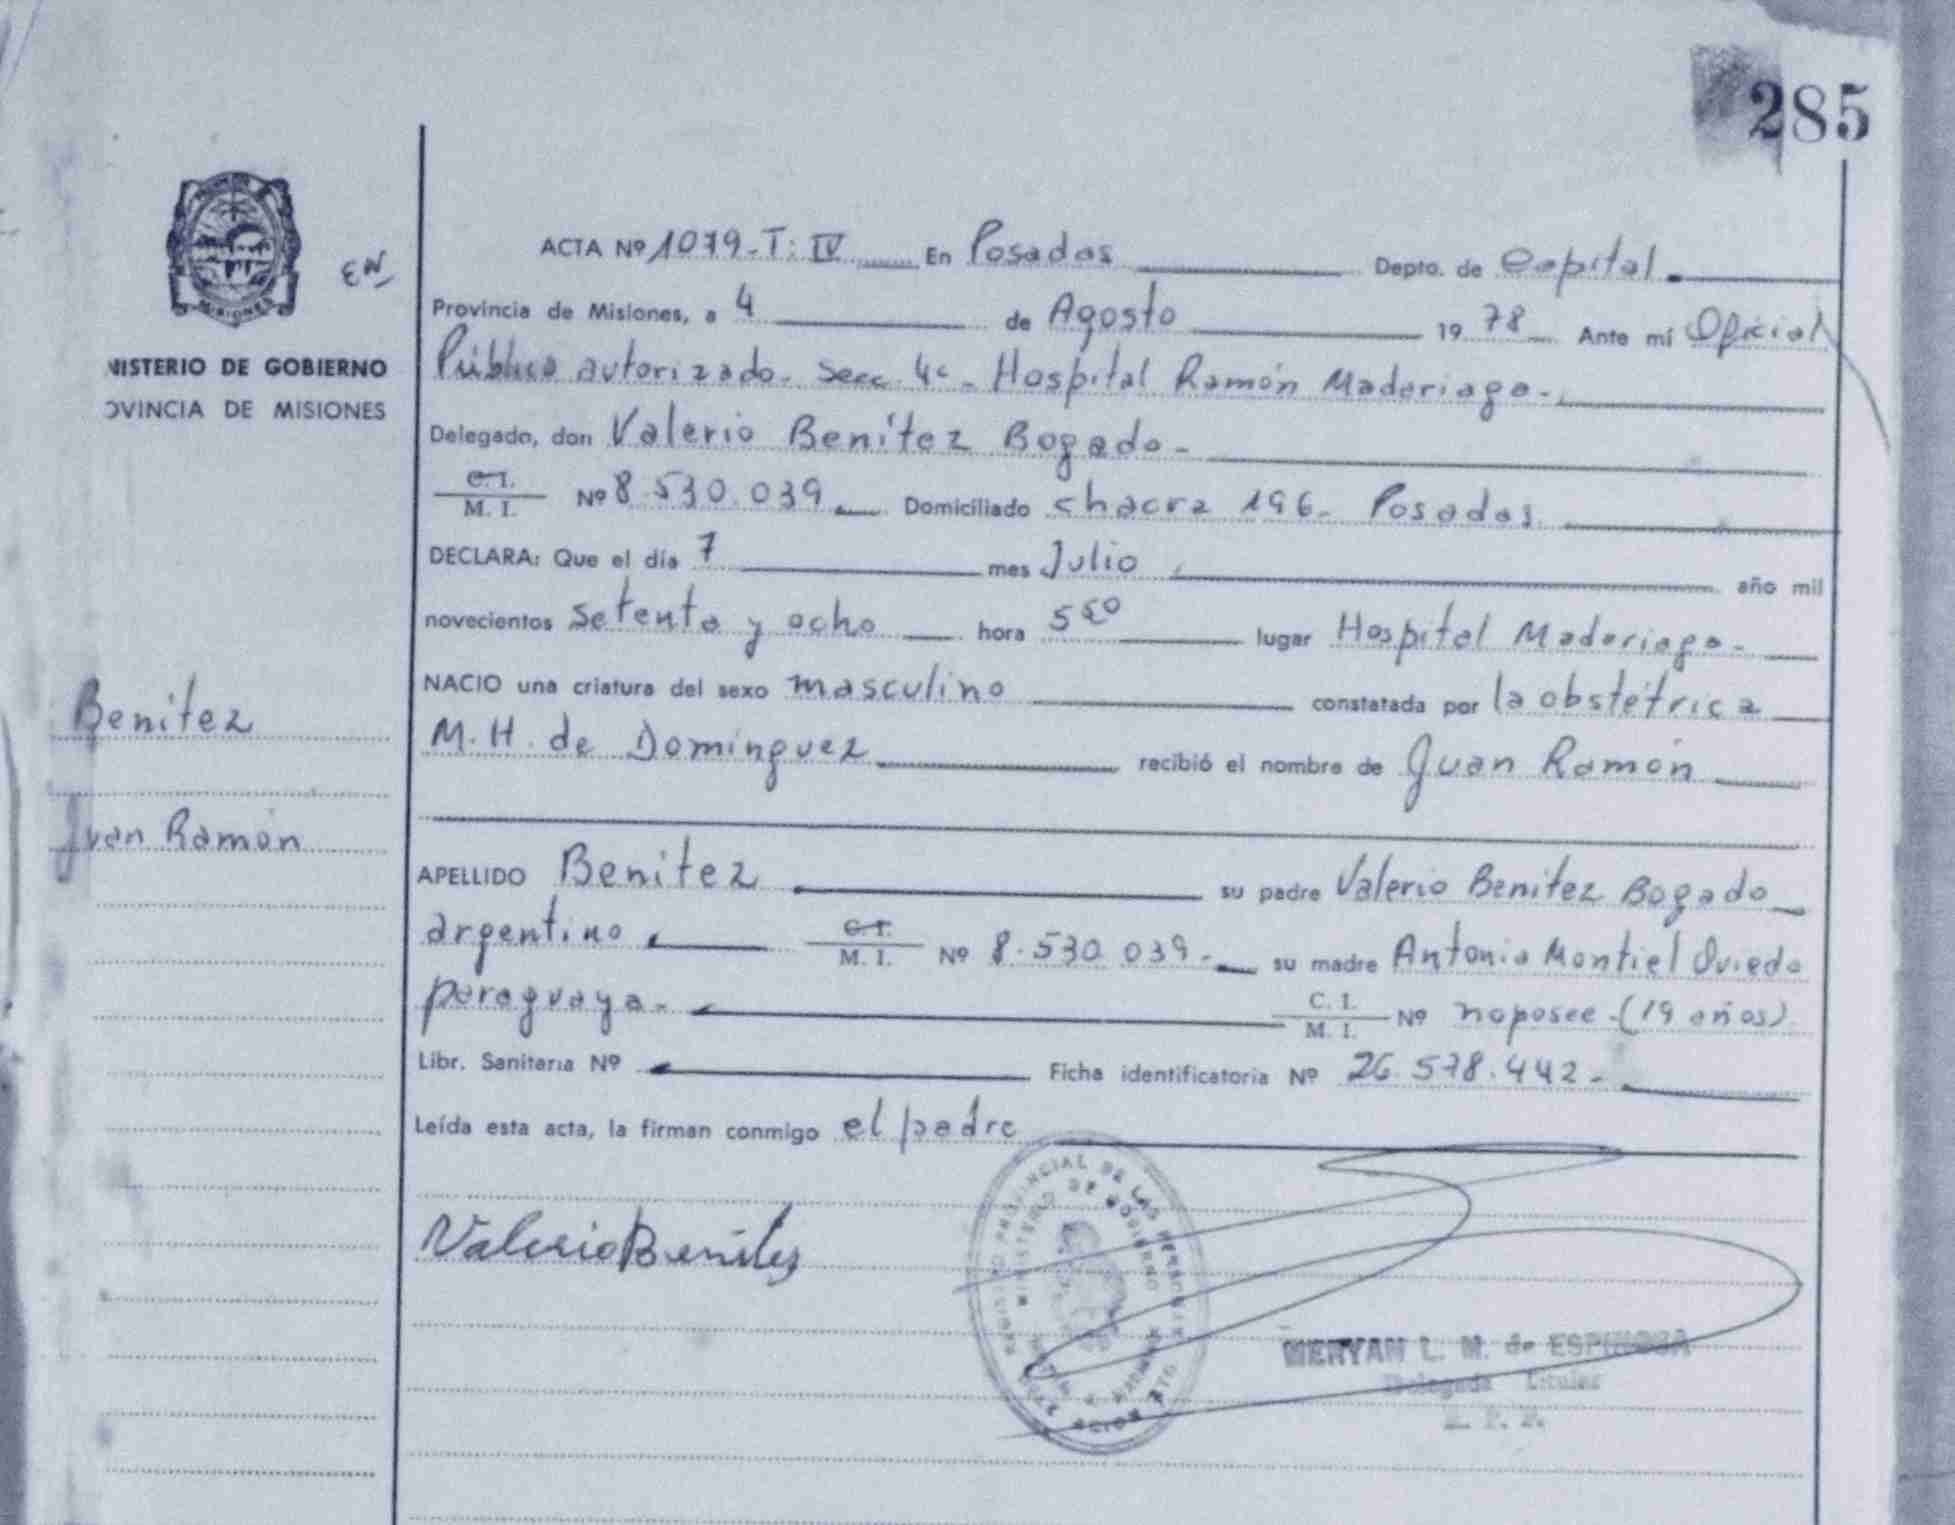 285
ACTA Nº 1079-T: IV En Posadas Depto. de Capital.
EN
Provincia de Misiones, a 4 de Agosto 1978 Ante mí Oficial
NISTERIO DE GOBIERNO
OVINCIA DE MISIONES
Público autorizado. Secc. 4ª - Hospital Ramón Madariaga -
Delegado, don Valerio Benítez Bogado -
C. I. / M. I. Nº 8.530.039 Domiciliado chacra 196 - Posadas
DECLARA: Que el día 7 mes Julio año mil
novecientos setenta y ocho hora 5 50 lugar Hospital Madariaga -
NACIO una criatura del sexo masculino constatada por la obstétrica
Benítez
M. H. de Domínguez recibió el nombre de Juan Ramón
Juan Ramón
APELLIDO Benítez su padre Valerio Benítez Bogado
argentino C. I. / M. I. Nº 8.530.039 - su madre Antonia Montiel Oviedo
paraguaya - C. I. / M. I. Nº no posee - (19 años)
Libr. Sanitaria Nº Ficha identificatoria Nº 26.578.442 -
Leída esta acta, la firman conmigo el padre
Valerio Benítez
REGISTRO PROVINCIAL DE LAS PERSONAS
MINISTERIO DE GOBIERNO
MERYAN L. M. de ESPINOSA
Delegada Titular